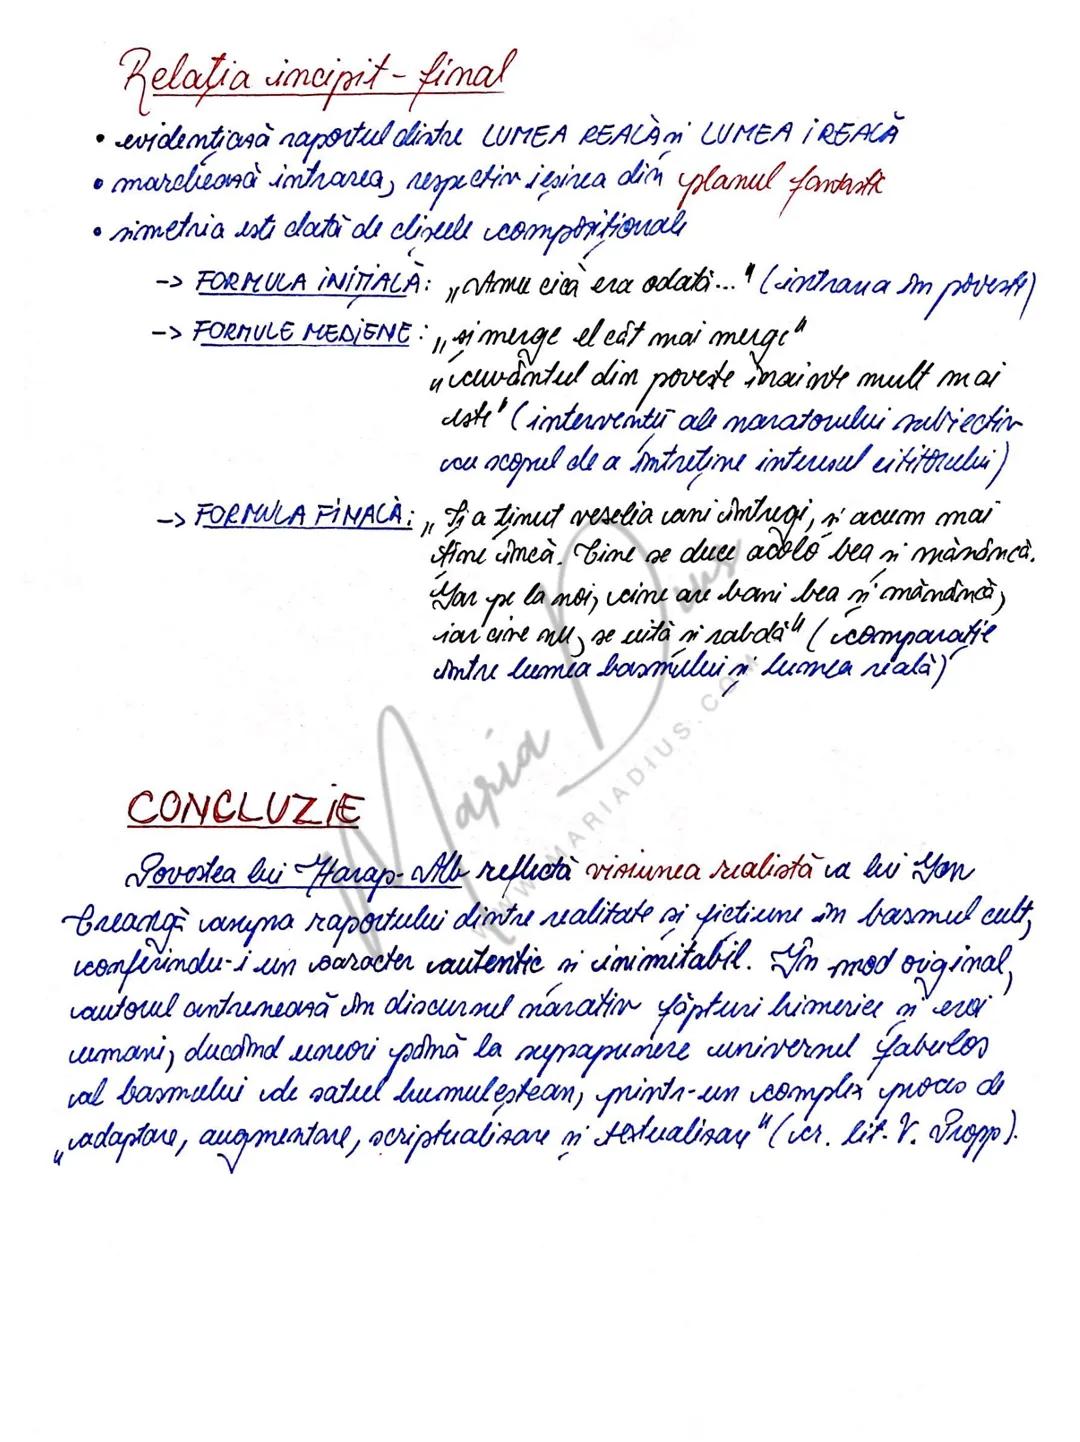 Relația incipit - final
• evidențiază raportul dintre LUMEA REALĂ și LUMEA IREALĂ
• marchează intrarea, respectiv ieșirea din planul fantastic
• simetria este dată de clișeele compoziționale
-> FORMULA INIȚIALĂ: „Amu cică era odată..." (intrarea în poveste)
-> FORMULE MEDIENE: „și merge el cât mai merge"
„cuvântul din poveste înainte mult mai
este" (intervenții ale naratorului subiectiv
cu scopul de a întreține interesul cititorului)
-> FORMULA FINALĂ: „Și a ținut veselia ani întregi, și acum mai
ține încă. Cine se duce acolo bea și mănâncă.
Iar pe la noi, cine are bani bea și mănâncă,
iar cine nu, se uită și rabdă" (comparație
între lumea basmului și lumea reală)
Maria Dius
WWW.MARIADIUS.COM
CONCLUZIE
Povestea lui Harap-Alb reflectă viziunea realistă a lui Ion
Creangă asupra raportului dintre realitate și ficțiune în basmul cult,
conferindu-i un caracter autentic și inimitabil. În mod original,
autorul antrenează în discursul narativ făpturi himerice și eroi
umani, ducând uneori până la suprapunere universul fabulos
al basmului de satul humuleștean, printr-un complex proces de
„adaptare, augmentare, scriptualizare și textualizare" (cr. lit. V. Propp).